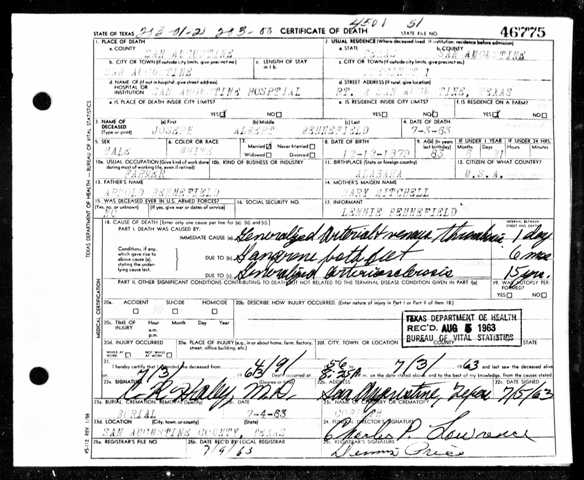 4501 51
STATE OF TEXAS CERTIFICATE OF DEATH STATE FILE NO. 46775
1. PLACE OF DEATH
a. COUNTY SAN AUGUSTINE
2. USUAL RESIDENCE (Where deceased lived. If institution: residence before admission)
a. STATE b. COUNTY SAN AUGUSTINE
b. CITY OR TOWN (If outside city limits, give precinct no.) c. LENGTH OF STAY
SAN AUGUSTINE
c. CITY OR TOWN (If outside city limits, give precinct no.)
d. NAME OF (If not in hospital, give street address)
HOSPITAL OR
INSTITUTION SAN AUGUSTINE HOSPTIAL
d. STREET ADDRESS (If rural, give location)
SAN AUGUSTINE, TEXAS
e. IS PLACE OF DEATH INSIDE CITY LIMITS?
YES NO
e. IS RESIDENCE INSIDE CITY LIMITS? f. IS RESIDENCE ON A FARM?
YES NO YES NO
3. NAME OF DECEASED (Type or print) (a) First (b) Middle (c) Last 4. DATE OF DEATH
JOSEPH ALBERT BENNEFIELD 7-3-63
5. SEX 6. COLOR OR RACE 7. Married Never Married 8. DATE OF BIRTH 9. AGE (In years last birthday) IF UNDER 1 YEAR IF UNDER 24 HRS.
MALE WHITE Widowed Divorced 83
10a. USUAL OCCUPATION (Give kind of work done 10b. KIND OF BUSINESS OR INDUSTRY 11. BIRTHPLACE (State or foreign country) 12. CITIZEN OF WHAT COUNTRY?
FARMER ALABAMA U.S.A.
13. FATHER'S NAME 14. MOTHER'S MAIDEN NAME
ARNOLD BENNEFIELD MARY MITCHELL
15. WAS DECEASED EVER IN U.S. ARMED FORCES? 16. SOCIAL SECURITY NO. 17. INFORMANT
(Yes, no, or unknown) (If yes, give war or dates of service)
NO LENNIE BENNEFIELD
18. CAUSE OF DEATH [Enter only one cause per line for (a), (b), and (c).]
PART I. DEATH WAS CAUSED BY:
IMMEDIATE CAUSE (a) Generalized Arterial & venous thrombosis 1 day
DUE TO (b) Gangrene both feet 6 mos
DUE TO (c) Generalized arteriosclerosis 15 yrs.
Conditions, if any, which gave rise to above cause (a), stating the underlying cause last.
PART II. OTHER SIGNIFICANT CONDITIONS CONTRIBUTING TO DEATH BUT NOT RELATED TO THE TERMINAL DISEASE CONDITION GIVEN IN PART I(a) 19. WAS AUTOPSY PERFORMED?
YES NO
20a. ACCIDENT SUICIDE HOMICIDE 20b. DESCRIBE HOW INJURY OCCURRED. (Enter nature of injury in Part I or Part II of item 18)
20c. TIME OF INJURY Hour Month Day Year
TEXAS DEPARTMENT OF HEALTH
REC'D AUG 5 1963
BUREAU OF VITAL STATISTICS
20d. INJURY OCCURRED 20e. PLACE OF INJURY (e.g., in or about home, farm, factory, street, office building, etc.) 20f. CITY, TOWN, OR LOCATION COUNTY STATE
WHILE AT WORK NOT WHILE AT WORK
21. 4/9/ 56 7/3/ 63
7/3/ 63 8:25A
22a. SIGNATURE 22b. ADDRESS 22c. DATE SIGNED
C. R. Haley M.D. San Augustine, Texas 7/5/63
23a. BURIAL, CREMATION, REMOVAL 23b. DATE 23c. NAME OF CEMETERY OR CREMATORY
BURIAL 7-4-63
23d. LOCATION (City, town, or county) (State) 24. FUNERAL DIRECTOR'S SIGNATURE
SAN AUGUSTINE COUNTY, TEXAS Charles P. Lawrence
25a. REGISTRAR'S FILE NO. 25b. DATE REC'D BY LOCAL REGISTRAR 25c. REGISTRAR'S SIGNATURE
7/9/63
TEXAS DEPARTMENT OF HEALTH - BUREAU OF VITAL STATISTICS
MEDICAL CERTIFICATION